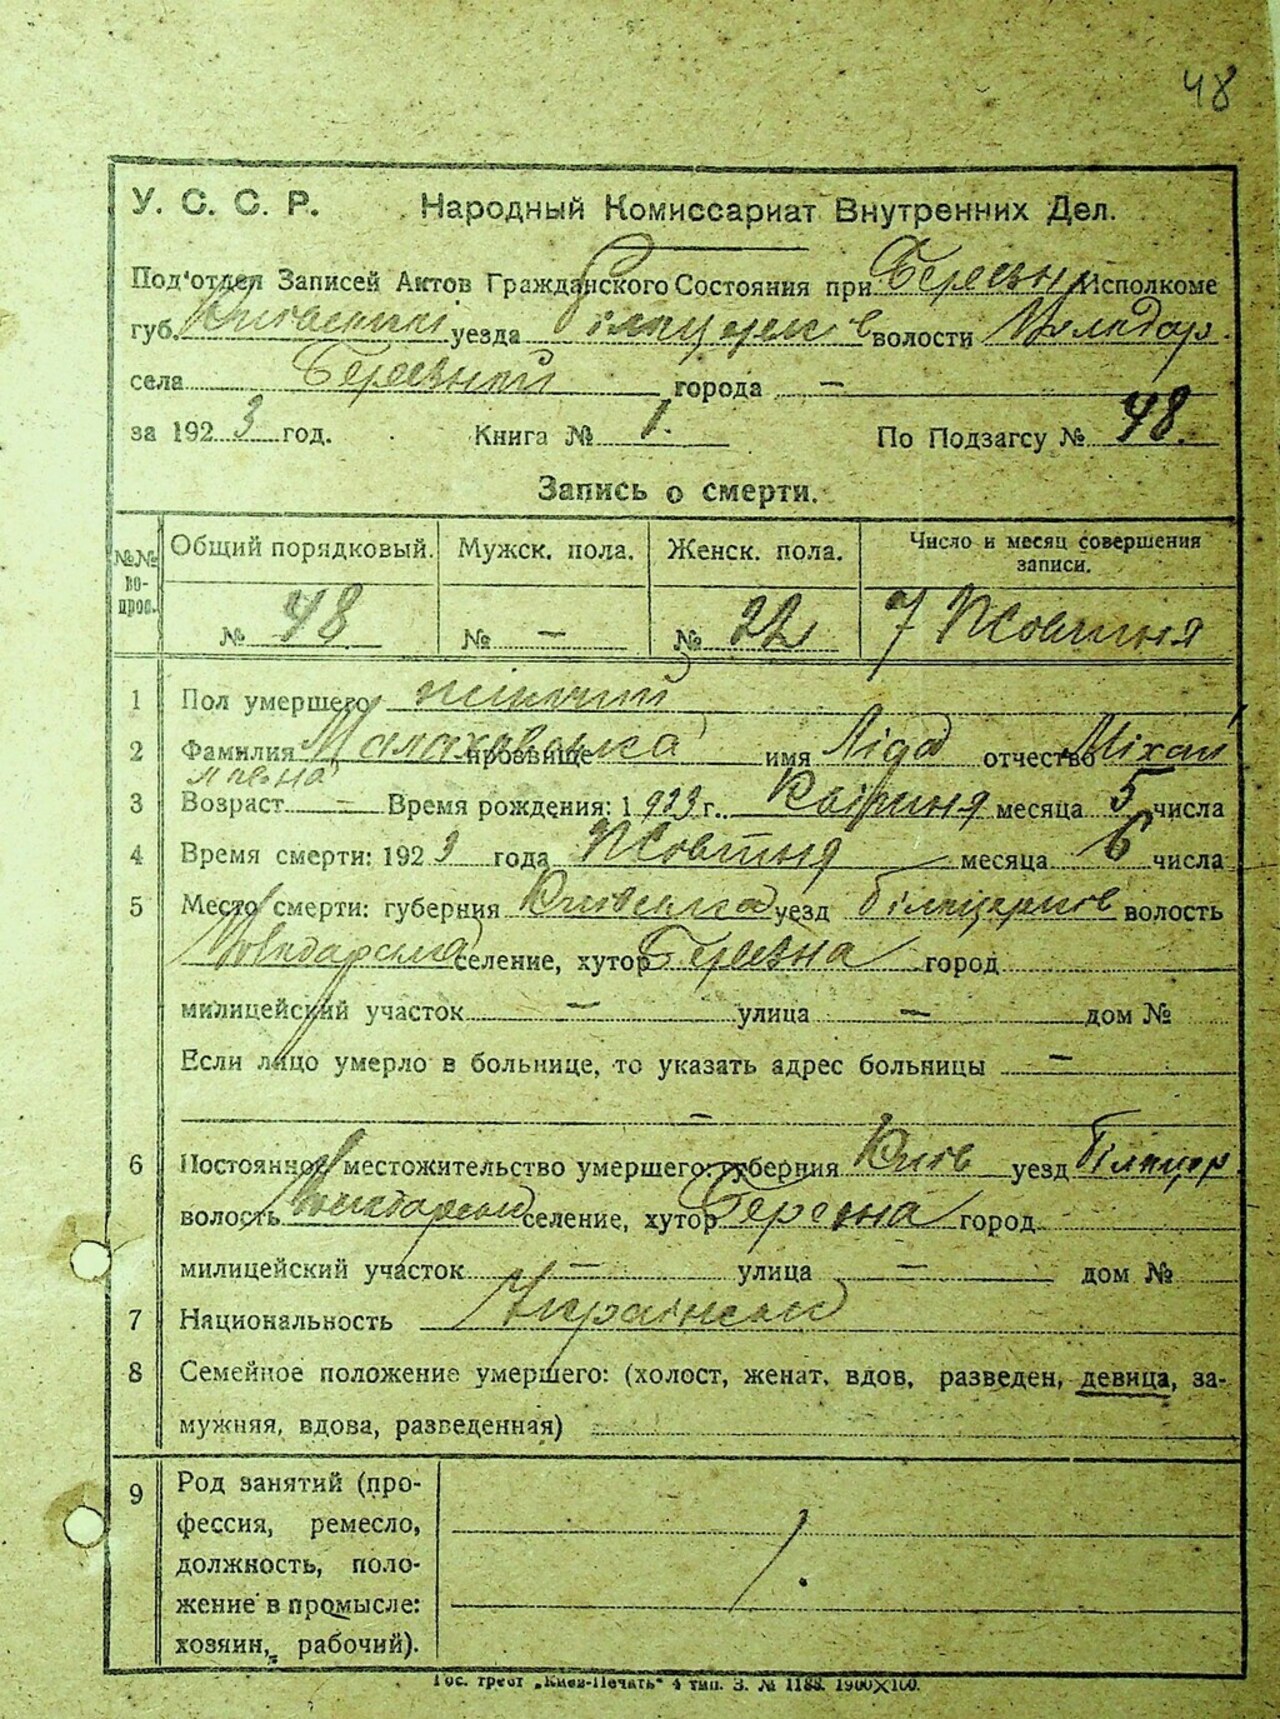 48
У. С. С. Р. Народный Комиссариат Внутренних Дел.
Под'отдел Записей Актов Гражданского Состояния при Березн Исполкоме
губ. Киівської уезда Білоцерків волости Володар.
села Березной города —
за 1923 год. Книга № 1. По Подзагсу № 48.
Запись о смерти.
№№ вопрос. Общий порядковый. Мужск. пола. Женск. пола. Число и месяц совершения записи.
№ 48 № — № 22 7 Жовтня
1 Пол умершего жіночий
2 Фамилия Малаховська прозвище имя Ліда отчество Міхай
лівна
3 Возраст — Время рождения: 1923 г. Квітня месяца 5 числа
4 Время смерти: 1923 года Жовтня месяца 6 числа
5 Место смерти: губерния Київська уезд Білоцерков волость
Володарська селение, хутор Березна город
милицейский участок — улица — дом №
Если лицо умерло в больнице, то указать адрес больницы —
—
6 Постоянное местожительство умершего: губерния Київ уезд Білоцер.
волость Володарськ селение, хутор Березна город
милицейский участок — улица — дом №
7 Национальность
8 Семейное положение умершего: (холост, женат, вдов, разведен, девица, за-
мужняя, вдова, разведенная)
9 Род занятий (про-
фессия, ремесло,
должность, поло-
жение в промысле:
хозяин, рабочий).
Гос. трест „Киев-Печать" 4 тип. З. № 1188. 1900×100.